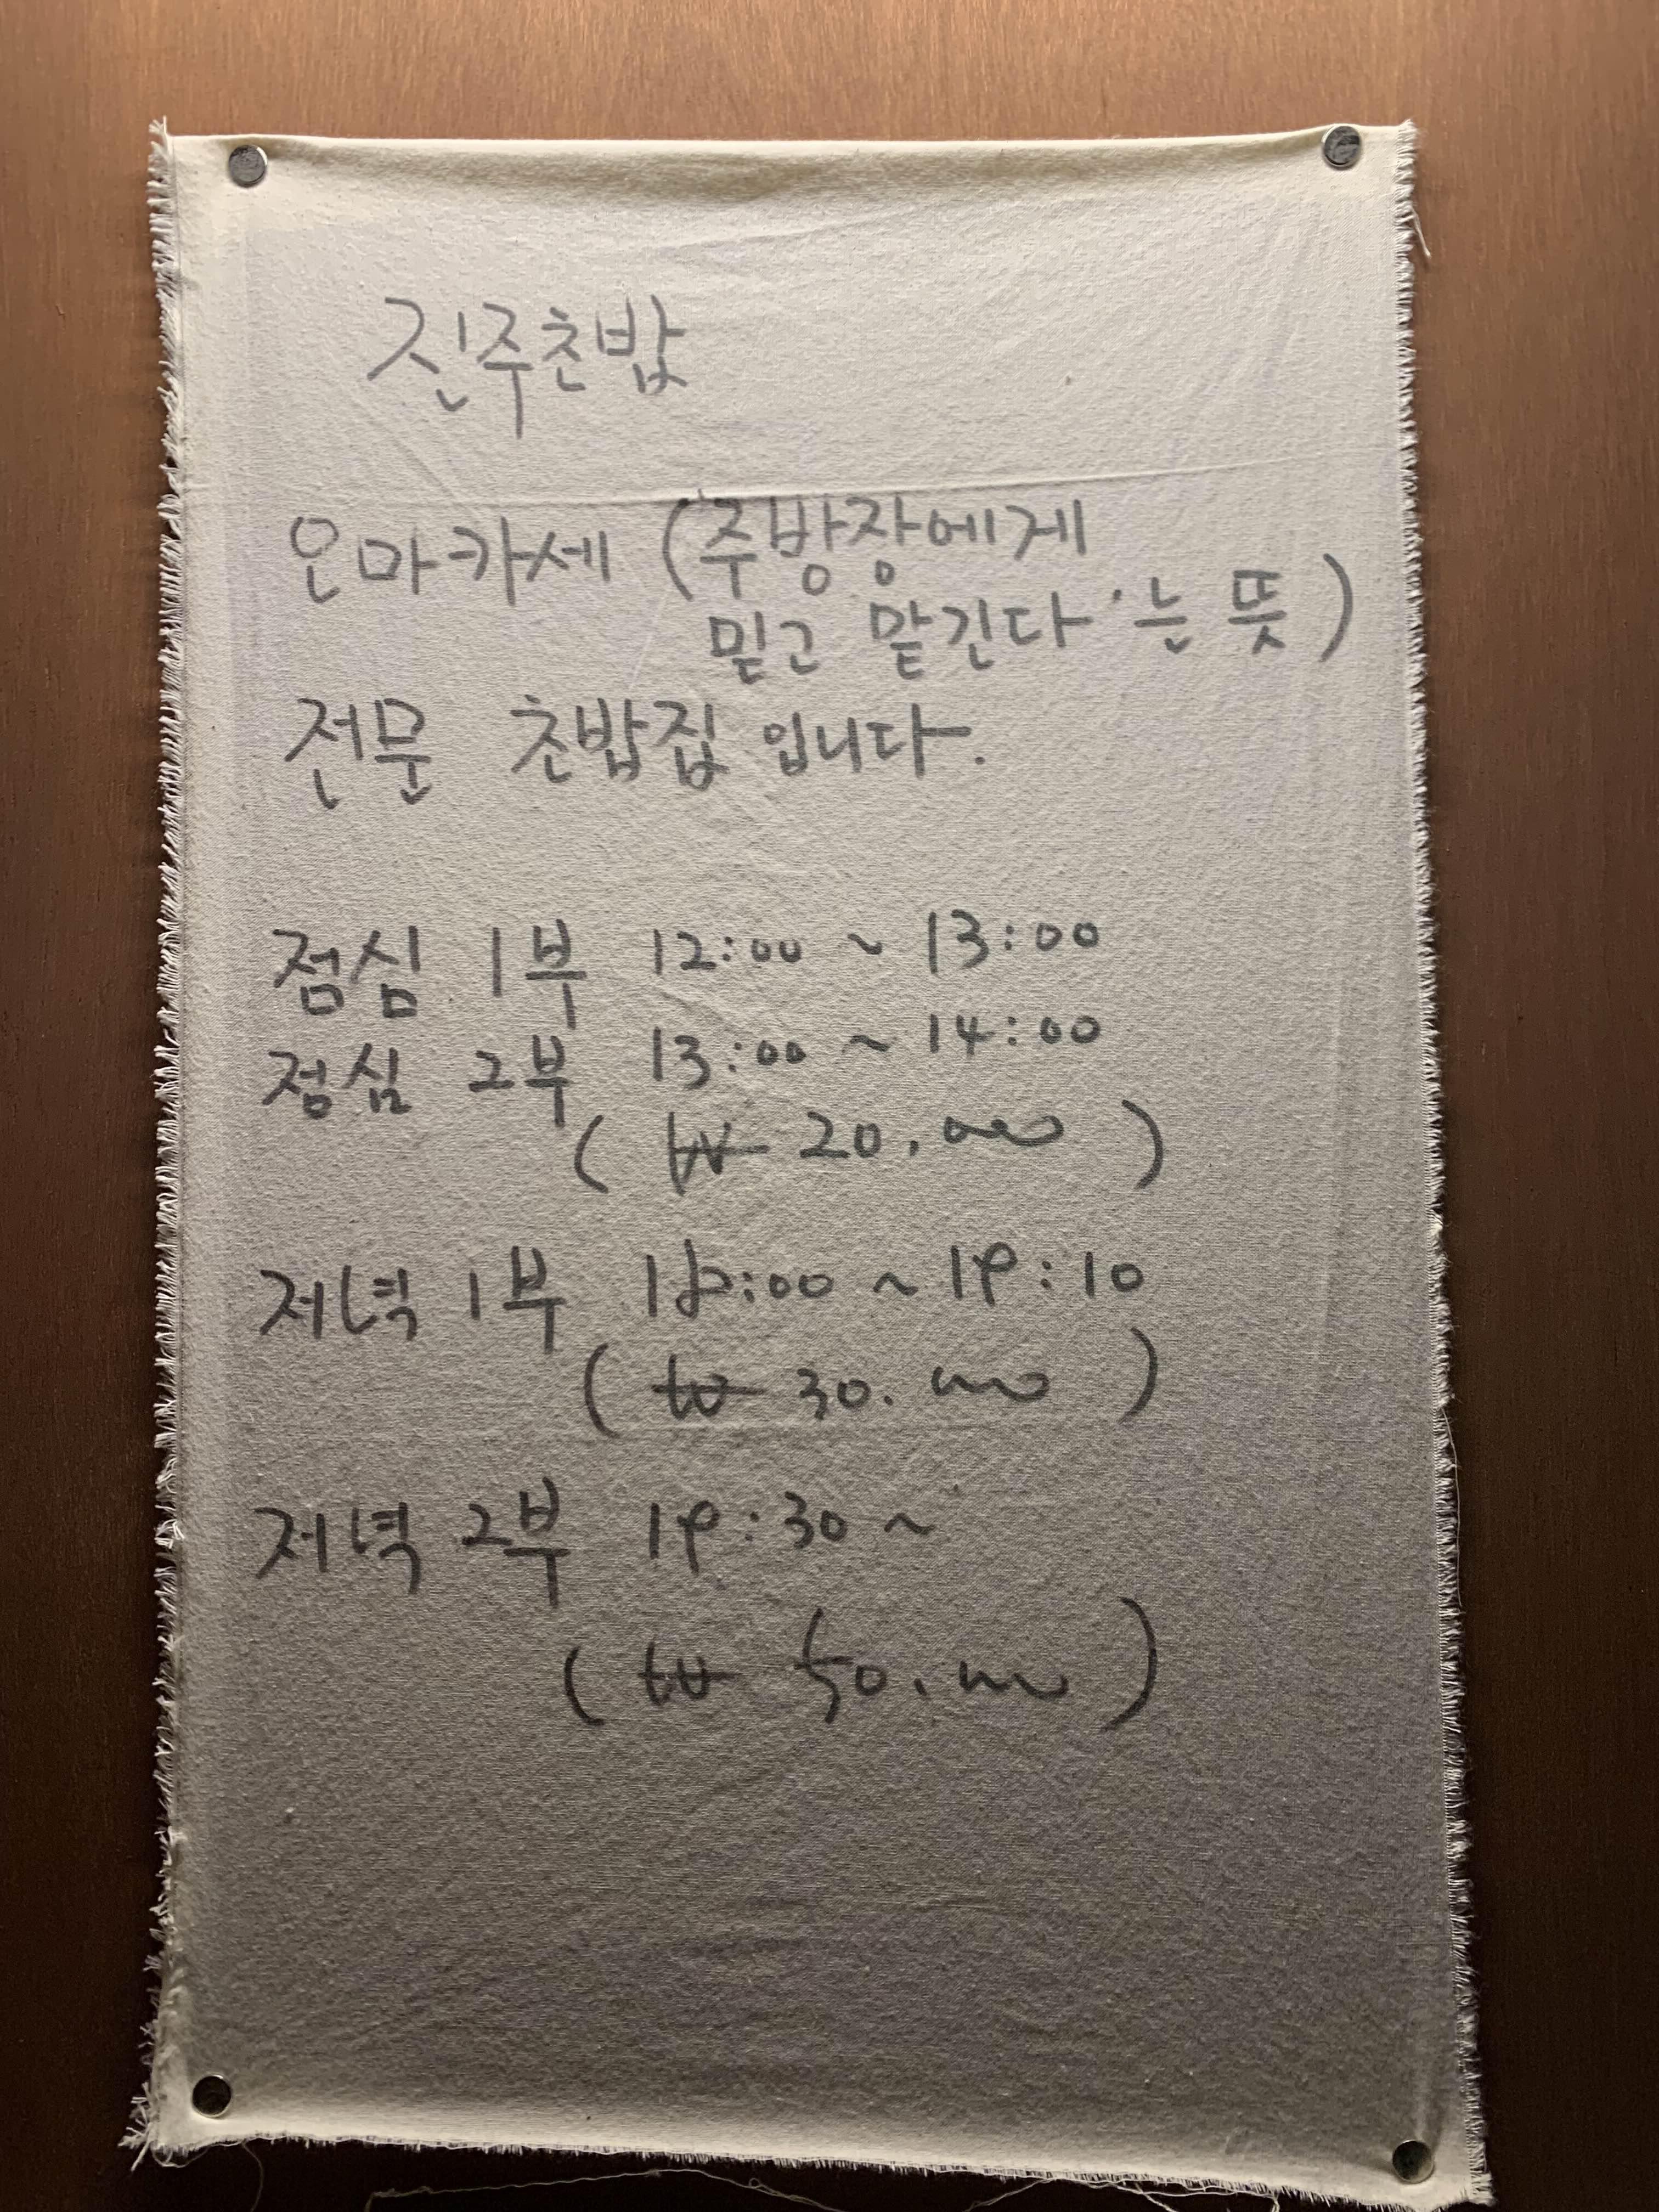 진주초밥
오마카세 ('주방장에게
믿고 맡긴다'는 뜻)
전문 초밥집 입니다.
점심 1부 12:00 ~ 13:00
점심 2부 13:00 ~ 14:00
(₩ 20.000)
저녁 1부 18:00 ~ 19:10
(₩ 30.000)
저녁 2부 19:30 ~
(₩ 50.000)